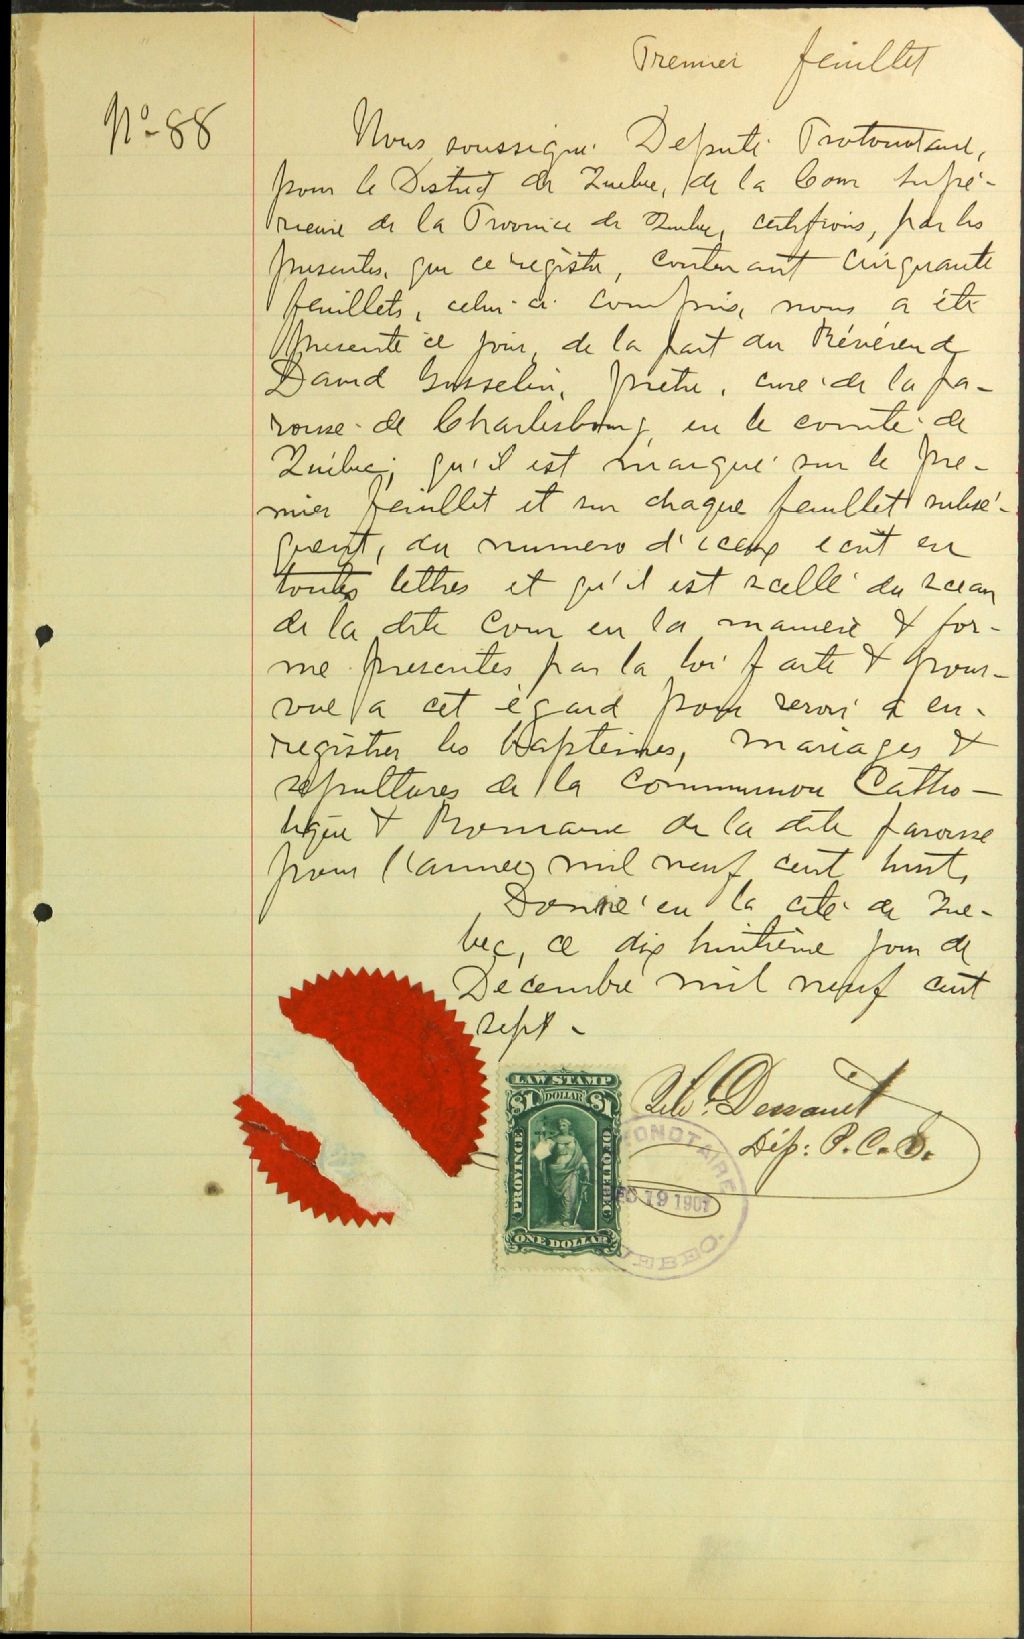 Premier feuillet
No 88
Nous soussigné Député Protonotaire,
pour le District de Québec, de la Cour Supé-
rieure de la Province de Québec, certifions, par les
présentes, que ce régistre, contenant cinquante
feuillets, celui-ci compris, nous a été
présenté ce jour, de la part du Révérend
David Gosselin, prêtre, curé de la pa-
roisse de Charlesbourg, en le comté de
Québec; qu'il est marqué sur le pre-
mier feuillet et sur chaque feuillet subsé-
quent, du numéro d'iceux écrit en
toutes lettres et qu'il est scellé du sceau
de la dite Cour en la manière & for-
me présentes par la loi faite & pour-
vue à cet égard pour servir à en-
régistrer les baptêmes, mariages &
sépultures de la communion Catho-
lique & Romaine de la dite paroisse
pour l'année mil neuf cent huit,
Donné en la cité de Qué-
bec, ce dix huitième jour de
Décembre mil neuf cent
sept -
LAW STAMP
$1 DOLLAR $1
PROVINCE OF QUEBEC
ONE DOLLAR
Dessault
Dép: P.C.S.
ONOTAIRE
19 1907
UEBEC